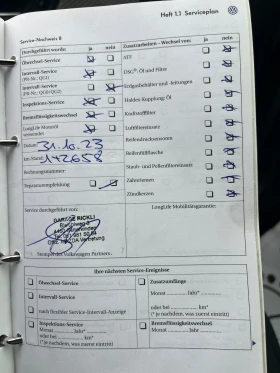 Heft 1.1 Serviceplan
Service-Nachweis 8
Durchgeführt wurde: ja nein
Ölwechsel-Service
Intervall-Service
(PR-Nr.: QG1)
Intervall-Service
(PR-Nr.: QG0/QG2)
Inspektions-Service
Bremsflüssigkeitswechsel
LongLife Motoröl
verwendet
Datum: 31.10.23
km-Stand: 142658
Rechnungsnummer:
Reparaturempfehlung
Service durchgeführt von:
GARAGE RICKLI
Stempel des Volkswagen Partners
Zusatzarbeiten - Wechsel von: ja nein
ATF
DSG®: Öl und Filter
Erdgasbehälter und -leitungen
Haldex Kupplung: Öl
Kraftstofffilter
Luftfiltereinsatz
Reifendruckssensoren
Reifenfüllflasche
Staub- und Pollenfiltereinsatz
Zahnriemen
Zündkerzen
LongLife Mobilitätsgarantie:
Ihre nächsten Service-Ereignisse
Ölwechsel-Service
Intervall-Service
nach flexibler Service-Intervall-Anzeige
Inspektions-Service
Monat Jahr*
oder bei km*
(* je nachdem, was zuerst eintritt)
Zusatzumfänge
Monat Jahr*
oder bei km*
(* je nachdem, was zuerst eintritt)
Bremsflüssigkeitswechsel
Monat Jahr